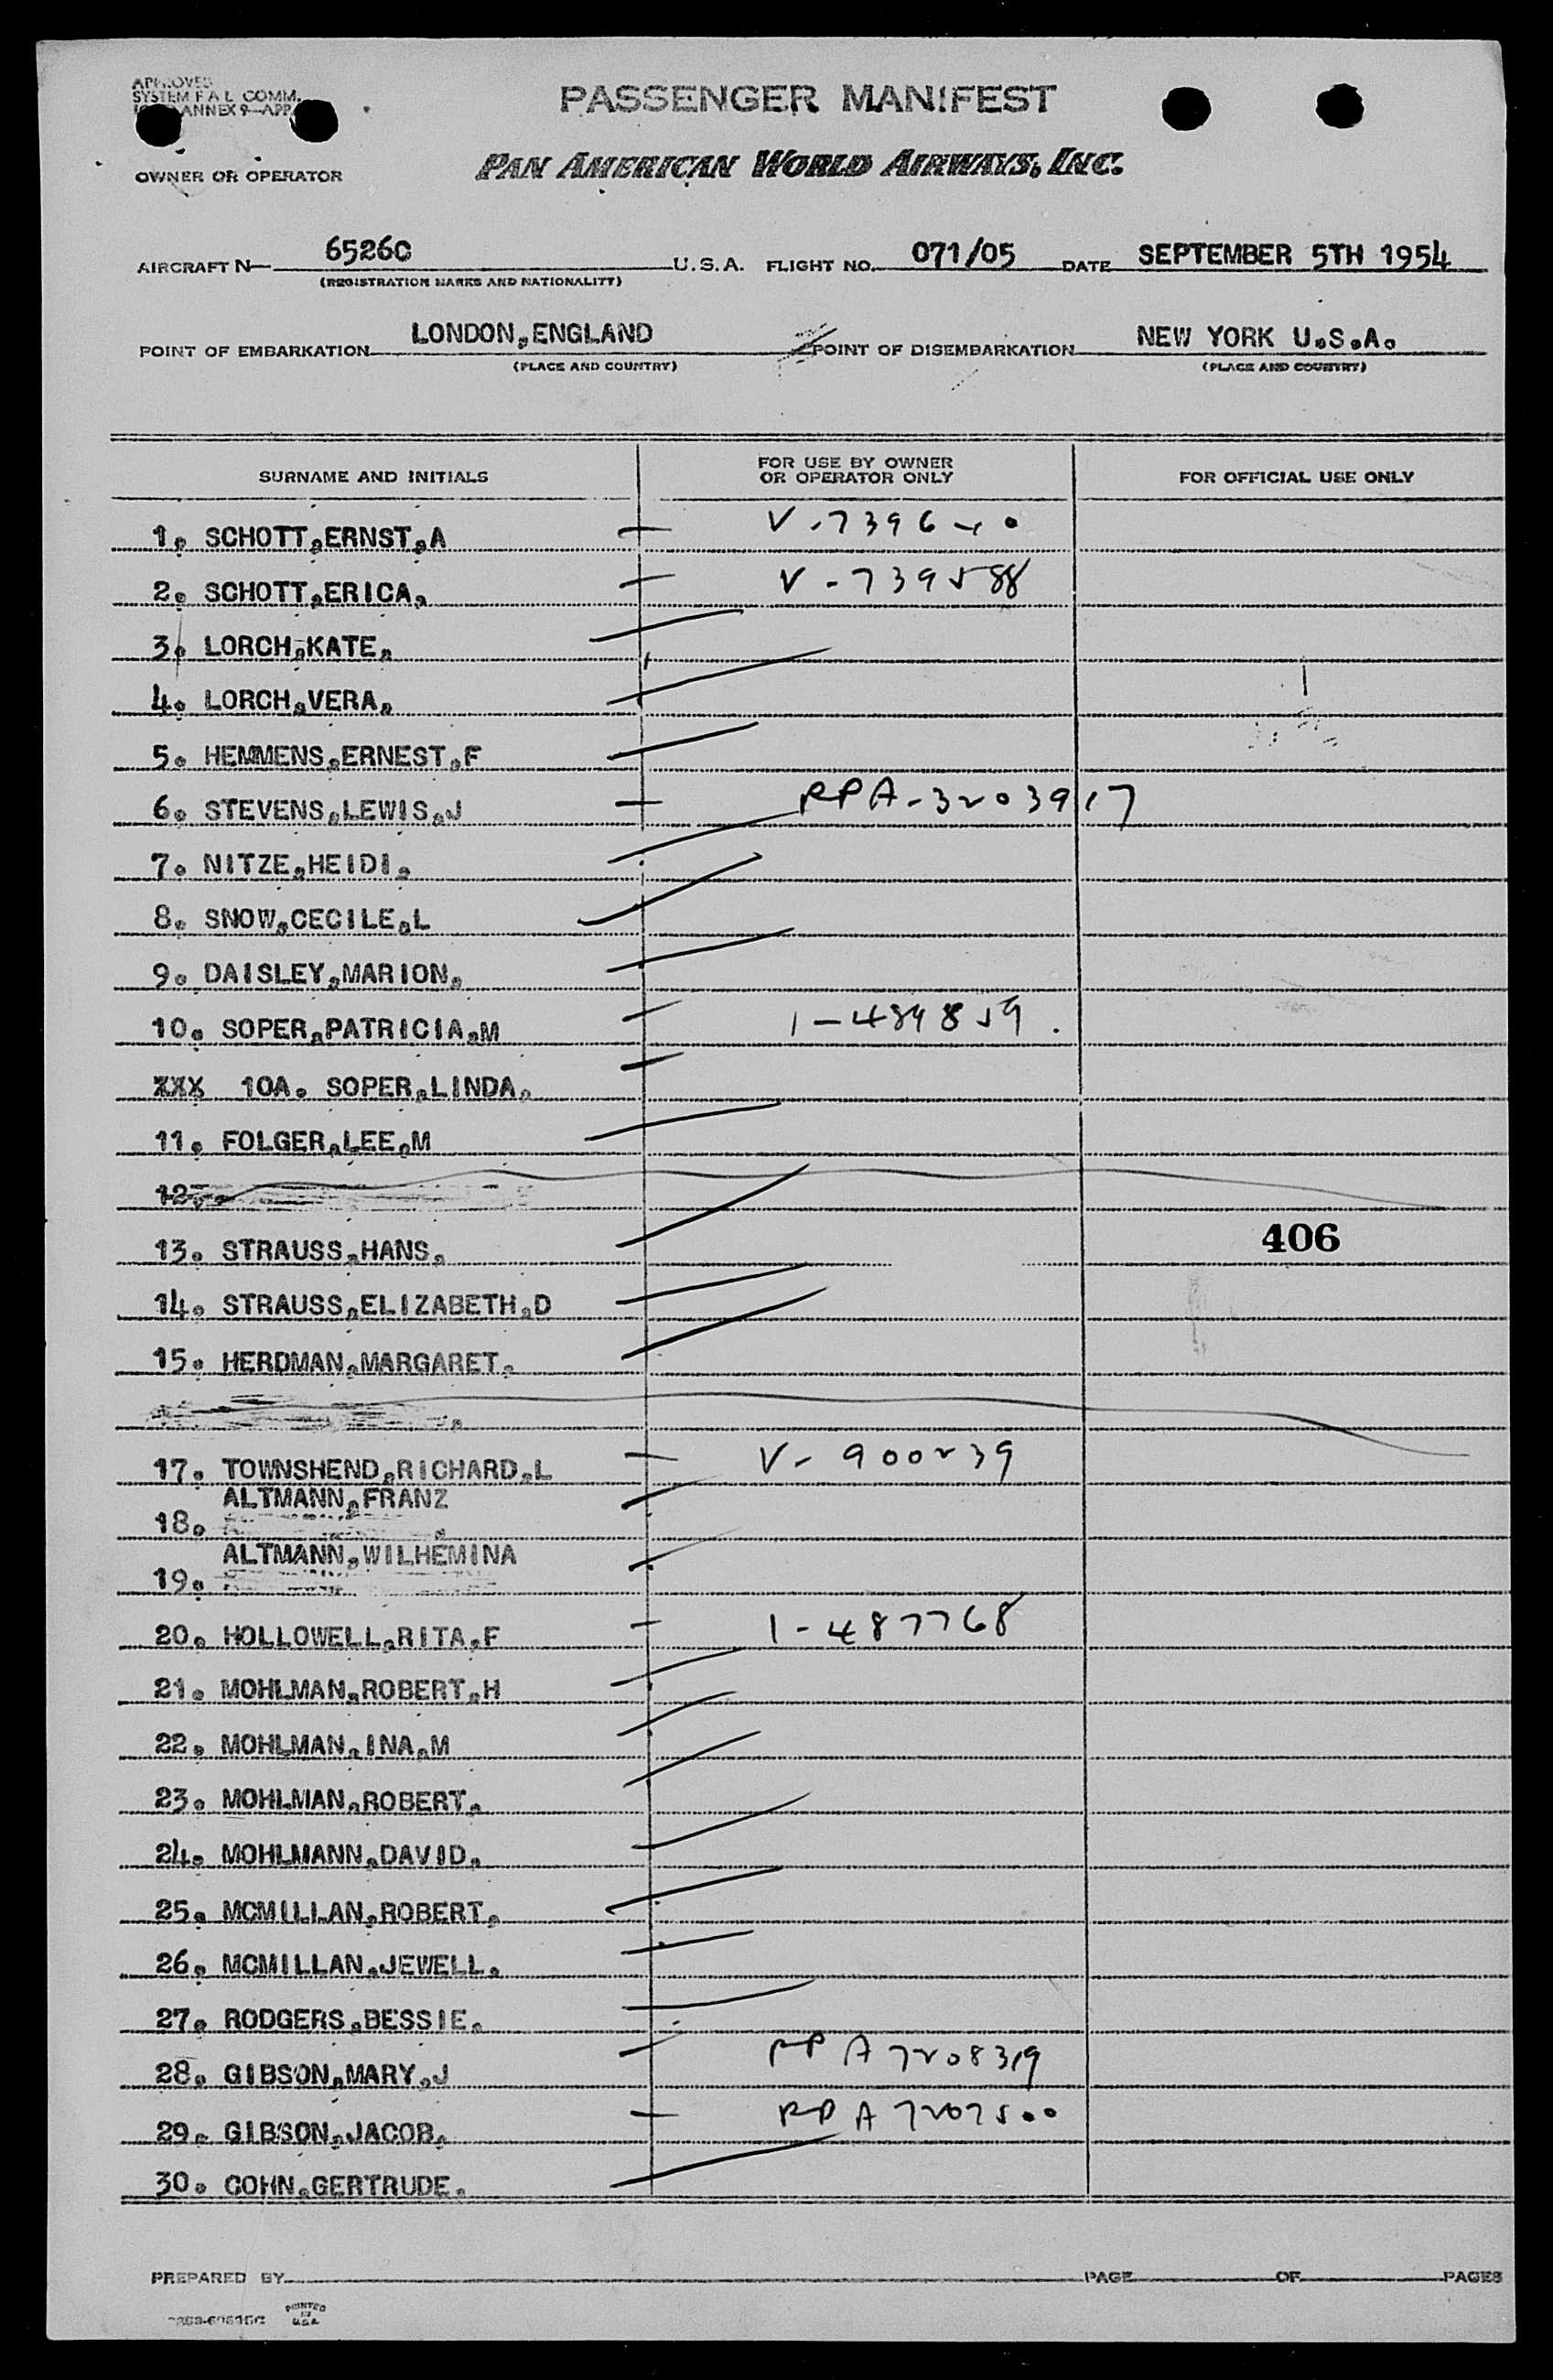 APPROVED
SYSTEM F A L COMM.
ANNEX 9—APP.
PASSENGER MANIFEST
OWNER OR OPERATOR
PAN AMERICAN WORLD AIRWAYS, INC.
AIRCRAFT N— 6526C U.S.A. FLIGHT NO. 071/05 DATE SEPTEMBER 5TH 1954
(REGISTRATION MARKS AND NATIONALITY)
POINT OF EMBARKATION LONDON,ENGLAND POINT OF DISEMBARKATION NEW YORK U.S.A.
(PLACE AND COUNTRY) (PLACE AND COUNTRY)
SURNAME AND INITIALS FOR USE BY OWNER OR OPERATOR ONLY FOR OFFICIAL USE ONLY
1. SCHOTT,ERNST,A
2. SCHOTT,ERICA, V-739588
3. LORCH,KATE,
4. LORCH,VERA,
5. HEMMENS,ERNEST,F
6. STEVENS,LEWIS,J RPA-3203917
7. NITZE,HEIDI,
8. SNOW,CECILE,L
9. DAISLEY,MARION,
10. SOPER,PATRICIA,M 1-489859
XXX 10A. SOPER,LINDA,
11. FOLGER,LEE,M
12.
13. STRAUSS,HANS, 406
14. STRAUSS,ELIZABETH,D
15. HERDMAN,MARGARET,
17. TOWNSHEND,RICHARD,L V-900239
ALTMANN,FRANZ
18.
ALTMANN,WILHEMINA
19.
20. HOLLOWELL,RITA,F 1-487768
21. MOHLMAN,ROBERT,H
22. MOHLMAN,INA,M
23. MOHLMAN,ROBERT,
24. MOHLMANN,DAVID,
25. MCMILLAN,ROBERT,
26. MCMILLAN,JEWELL,
27. RODGERS,BESSIE,
28. GIBSON,MARY,J RPA 7208319
29. GIBSON,JACOB, RPA 7207500
30. COHN,GERTRUDE,
PREPARED BY PAGE OF PAGES
PRINTED
IN
U.S.A.